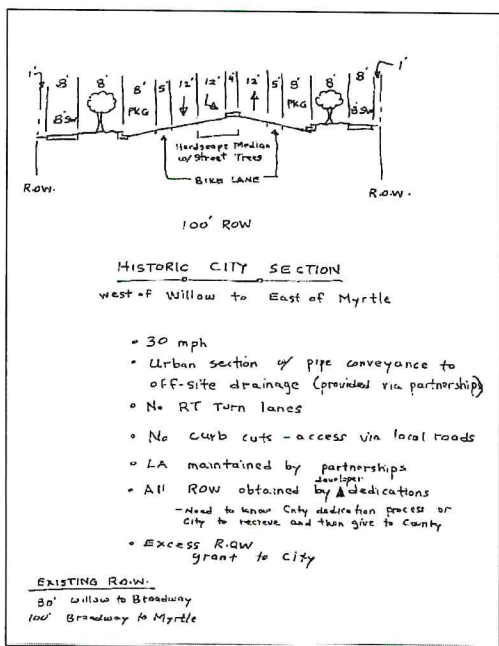 1' 8' 8' 8' 5' 12' 12' 4' 12' 5' 8' 8' 8' 1'
8'SW PKG PKG 8'SW
Hardscape Median
w/Street Trees
BIKE LANE
R.O.W. R.O.W.
100' ROW
HISTORIC CITY SECTION
west of Willow to East of Myrtle
• 30 mph
• Urban section w/ pipe conveyance to
off-site drainage (provided via partnership)
• No RT Turn lanes
• No curb cuts - access via local roads
• LA maintained by partnerships
developer
• All ROW obtained by dedications
- Need to know Cnty dedication process or
City to recieve and then give to County
• Excess R.O.W
grant to City
EXISTING R.O.W.
80' Willow to Broadway
100' Broadway to Myrtle